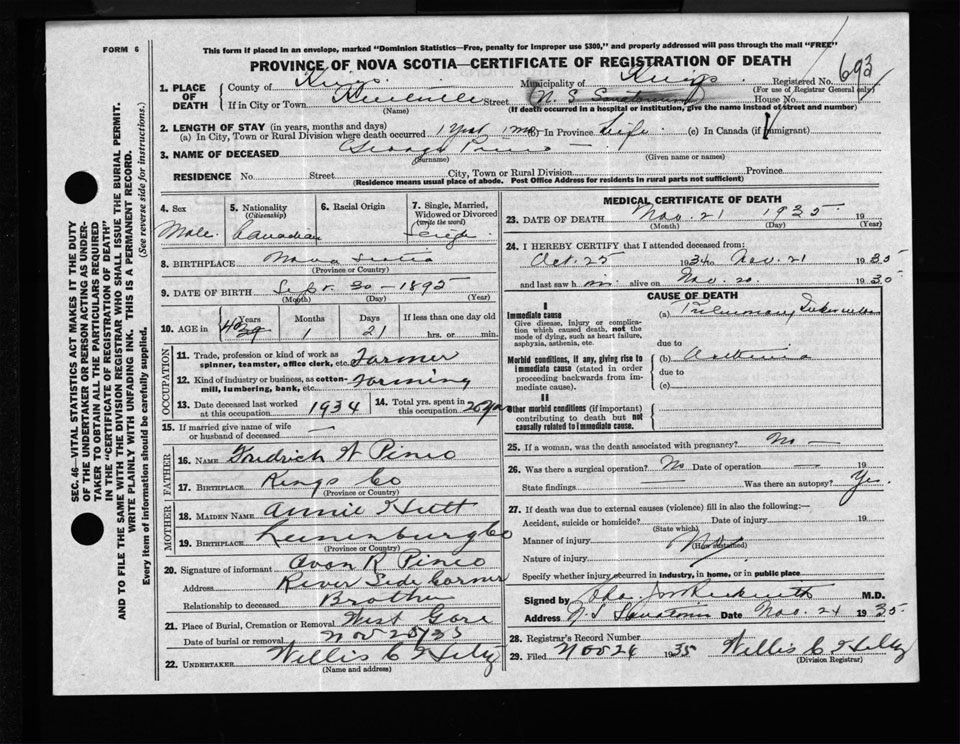 FORM 6
This form if placed in an envelope, marked "Dominion Statistics—Free, penalty for improper use $300," and properly addressed will pass through the mail "FREE"
PROVINCE OF NOVA SCOTIA—CERTIFICATE OF REGISTRATION OF DEATH
1. PLACE OF DEATH
County of Kings Municipality of Kings Registered No. 693
(For use of Registrar General only)
If in City or Town Kentville Street N. S. Sanatorium House No.
(Name) (If death occurred in a hospital or institution, give the name instead of street and number)
2. LENGTH OF STAY (in years, months and days)
(a) In City, Town or Rural Division where death occurred 1 year 1 mo (b) In Province Life (c) In Canada (if immigrant)
3. NAME OF DECEASED George Pineo —
(Surname) (Given name or names)
RESIDENCE No. Street City, Town or Rural Division Province
(Residence means usual place of abode. Post Office Address for residents in rural parts not sufficient)
4. Sex Male
5. Nationality (Citizenship) Canadian
6. Racial Origin
7. Single, Married, Widowed or Divorced (Write the word) Single
8. BIRTHPLACE Nova Scotia
(Province or Country)
9. DATE OF BIRTH Sept. 30 - 1895
(Month) (Day) (Year)
10. AGE in Years Months 1 Days 21 If less than one day old hrs. or min.
OCCUPATION
11. Trade, profession or kind of work as spinner, teamster, office clerk, etc. Farmer
12. Kind of industry or business, as cotton-mill, lumbering, bank, etc. Farming
13. Date deceased last worked at this occupation 1934
14. Total yrs. spent in this occupation 20 yrs
15. If married give name of wife or husband of deceased —
FATHER
16. NAME Fredrich W Pineo
17. BIRTHPLACE Kings Co
(Province or Country)
MOTHER
18. MAIDEN NAME Annie Hutt
19. BIRTHPLACE Lunenburg Co
(Province or Country)
20. Signature of informant Avon R Pineo
Address River Side Corner
Relationship to deceased Brother
21. Place of Burial, Cremation or Removal West Gore
Date of burial or removal Nov 25/35
22. UNDERTAKER Willis C Hiltz
(Name and address)
MEDICAL CERTIFICATE OF DEATH
23. DATE OF DEATH Nov. 21 1935 19
(Month) (Day) (Year)
24. I HEREBY CERTIFY that I attended deceased from:
Oct. 25 1934 to Nov. 21 1935
and last saw h im alive on Nov. 20 1935
CAUSE OF DEATH
I
Immediate cause
Give disease, injury or complication which caused death, not the mode of dying, such as heart failure, asphyxia, asthenia, etc.
(a) Pulmonary Tuberculosis
due to
Morbid conditions, if any, giving rise to immediate cause (stated in order proceeding backwards from immediate cause).
(b) Asthenia
due to
(c)
II
Other morbid conditions (if important) contributing to death but not causally related to immediate cause.
25. If a woman, was the death associated with pregnancy? No —
26. Was there a surgical operation? No Date of operation — 19
State findings — Was there an autopsy? Yes.
27. If death was due to external causes (violence) fill in also the following:—
Accident, suicide or homicide? Date of injury 19
(State which)
Manner of injury No
(How sustained)
Nature of injury
Specify whether injury occurred in industry, in home, or in public place
Signed by M.D.
Address N. S. Sanatorium Date Nov. 24 1935
28. Registrar's Record Number
29. Filed Nov 26 1935 Willis C Hiltz
(Division Registrar)
SEC. 46—VITAL STATISTICS ACT MAKES IT THE DUTY
OF THE UNDERTAKER OR PERSON ACTING AS UNDER-
TAKER TO OBTAIN ALL THE PARTICULARS REQUIRED
IN THE "CERTIFICATE OF REGISTRATION OF DEATH"
AND TO FILE THE SAME WITH THE DIVISION REGISTRAR WHO SHALL ISSUE THE BURIAL PERMIT.
WRITE PLAINLY WITH UNFADING INK. THIS IS A PERMANENT RECORD.
Every item of information should be carefully supplied. (See reverse side for instructions.)